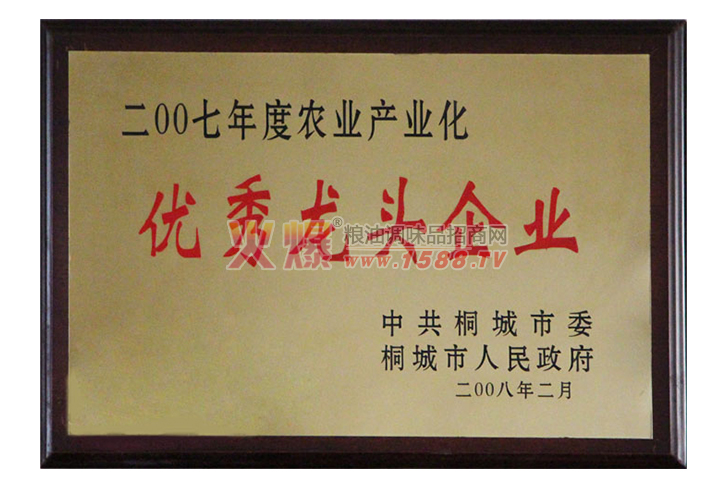 二00七年度农业产业化
优秀龙头企业
火爆®粮油调味品招商网
www.1588.TV
中共桐城市委
桐城市人民政府
二00八年二月